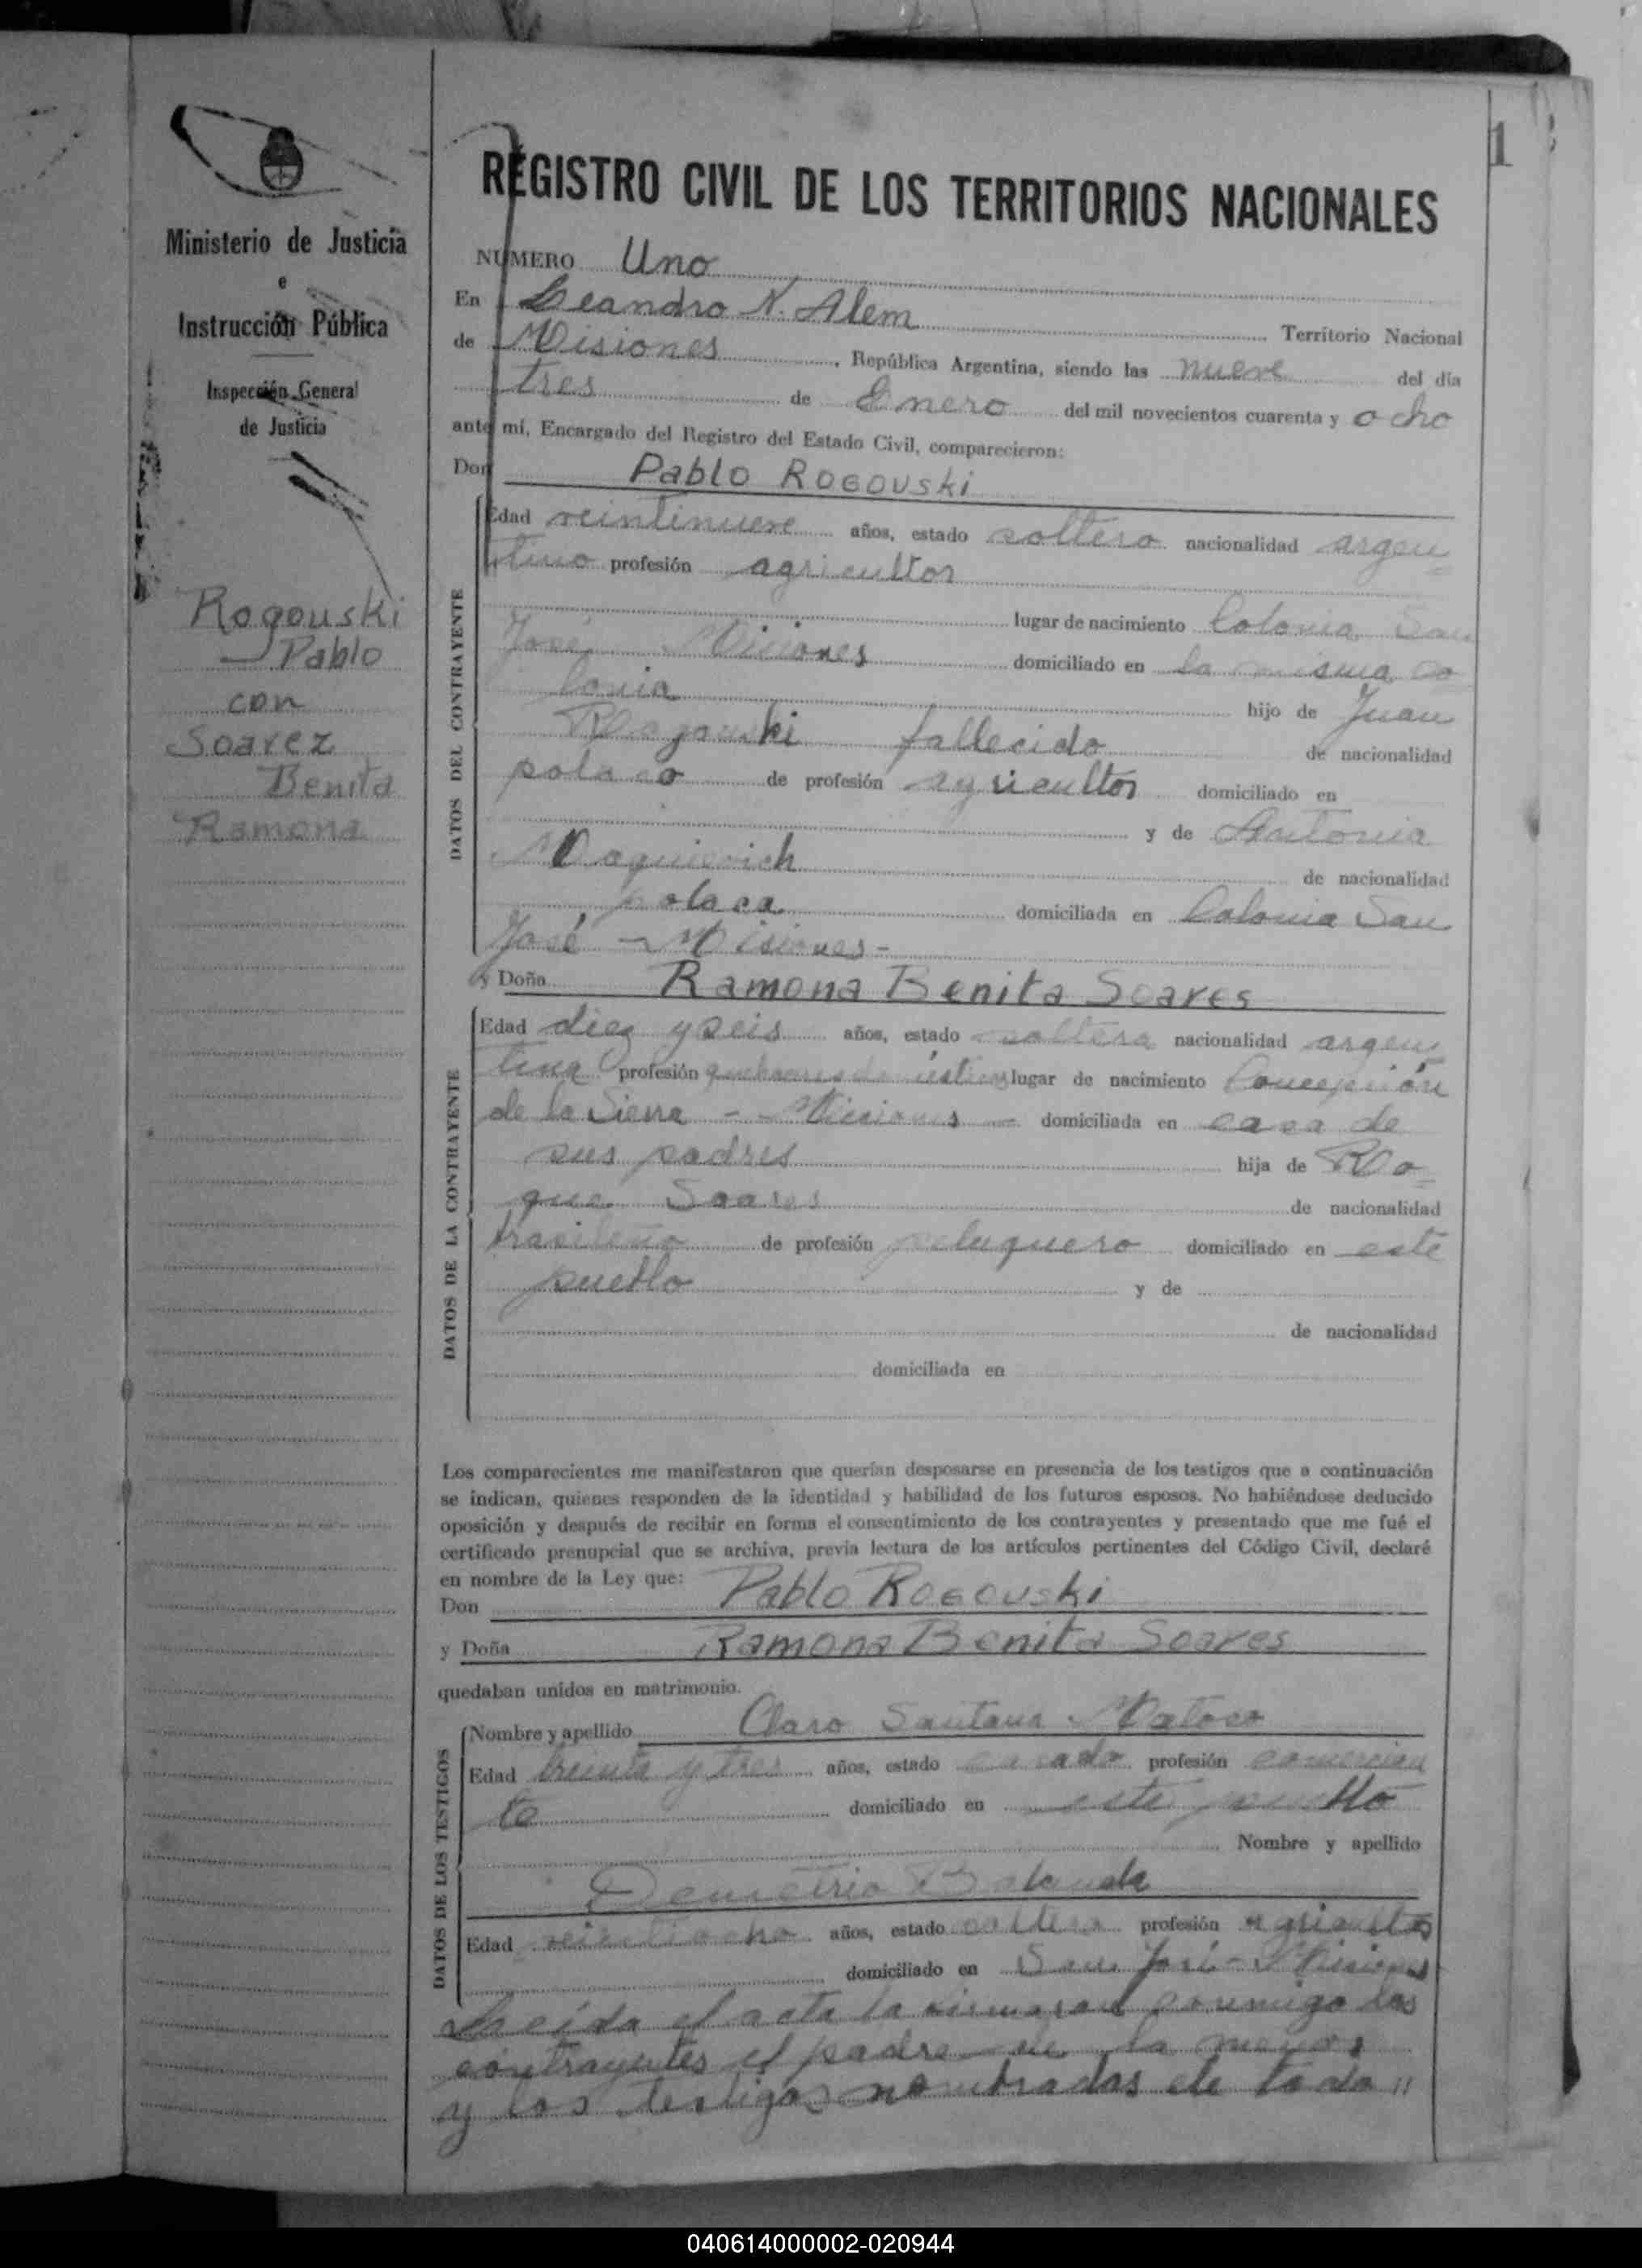 1
REGISTRO CIVIL DE LOS TERRITORIOS NACIONALES
Ministerio de Justicia
e
Instrucción Pública
Inspección General
de Justicia
Rogouski
Pablo
con
Soarez
Benita
Ramona
NUMERO Uno
En Leandro N. Alem Territorio Nacional
de Misiones, República Argentina, siendo las nueve del día
tres de Enero del mil novecientos cuarenta y ocho
ante mí, Encargado del Registro del Estado Civil, comparecieron:
Don Pablo Rogouski
DATOS DEL CONTRAYENTE
Edad veintinueve años, estado soltero nacionalidad argen
tino profesión agricultor
lugar de nacimiento Colonia San
José Misiones domiciliado en la misma co
lonia hijo de Juan
Rogouski fallecido de nacionalidad
polaco de profesión agricultor domiciliado en
y de Antonia
de nacionalidad
polaca domiciliada en Colonia San
José - Misiones -
y Doña Ramona Benita Soares
DATOS DE LA CONTRAYENTE
Edad diez y seis años, estado soltera nacionalidad argen
tina profesión quehaceres domésticos lugar de nacimiento Concepción
de la Sierra - Misiones - domiciliada en casa de
sus padres hija de Ro
que Soares de nacionalidad
brasileño de profesión peluquero domiciliado en este
pueblo y de
de nacionalidad
domiciliada en
Los comparecientes me manifestaron que querían desposarse en presencia de los testigos que a continuación
se indican, quienes responden de la identidad y habilidad de los futuros esposos. No habiéndose deducido
oposición y después de recibir en forma el consentimiento de los contrayentes y presentado que me fué el
certificado prenupcial que se archiva, previa lectura de los artículos pertinentes del Código Civil, declaré
en nombre de la Ley que:
Don Pablo Rogouski
y Doña Ramona Benita Soares
quedaban unidos en matrimonio.
DATOS DE LOS TESTIGOS
Nombre y apellido Claro Santana Matoso
Edad treinta y tres años, estado casado profesión comercian
te domiciliado en este pueblo
Nombre y apellido
Demetrio
Edad veintiocho años, estado soltero profesión agricultor
domiciliado en San José - Misiones
Leída el acta la firmaron conmigo los
contrayentes el padre de la menor
y los testigos nombrados de todo "
040614000002-020944